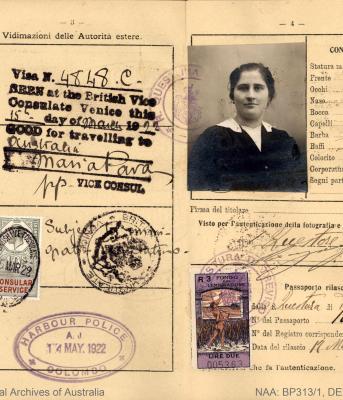 3
Vidimazioni delle Autorità estere.
Visa N. 4848.C.
SEEN at the British Vice
Consulate Venice this
day of March 19
GOOD for travelling to
Australia
Maria Pava
pp VICE CONSUL.
Subject
CONSULAR
SERVICE
HARBOUR POLICE
A.J
14 MAY. 1922
COLOMBO
4
CON
Statura
Fronte
Occhi
Naso
Bocca
Capelli
Barba
Baffi
Colorito
Corporatura
Segni parti
Firma del titolare
Visto per l'autenticazione della fotografia e
Questore
Passaporto rilasc
dalla R. Questura di
N. del Passaporto
N. del Registro corrisponden
Data del rilascio 12 M
che fa l'autenticazione.
R3 FONDO
LIRE DUE
005363
al Archives of Australia
NAA: BP313/1, DE